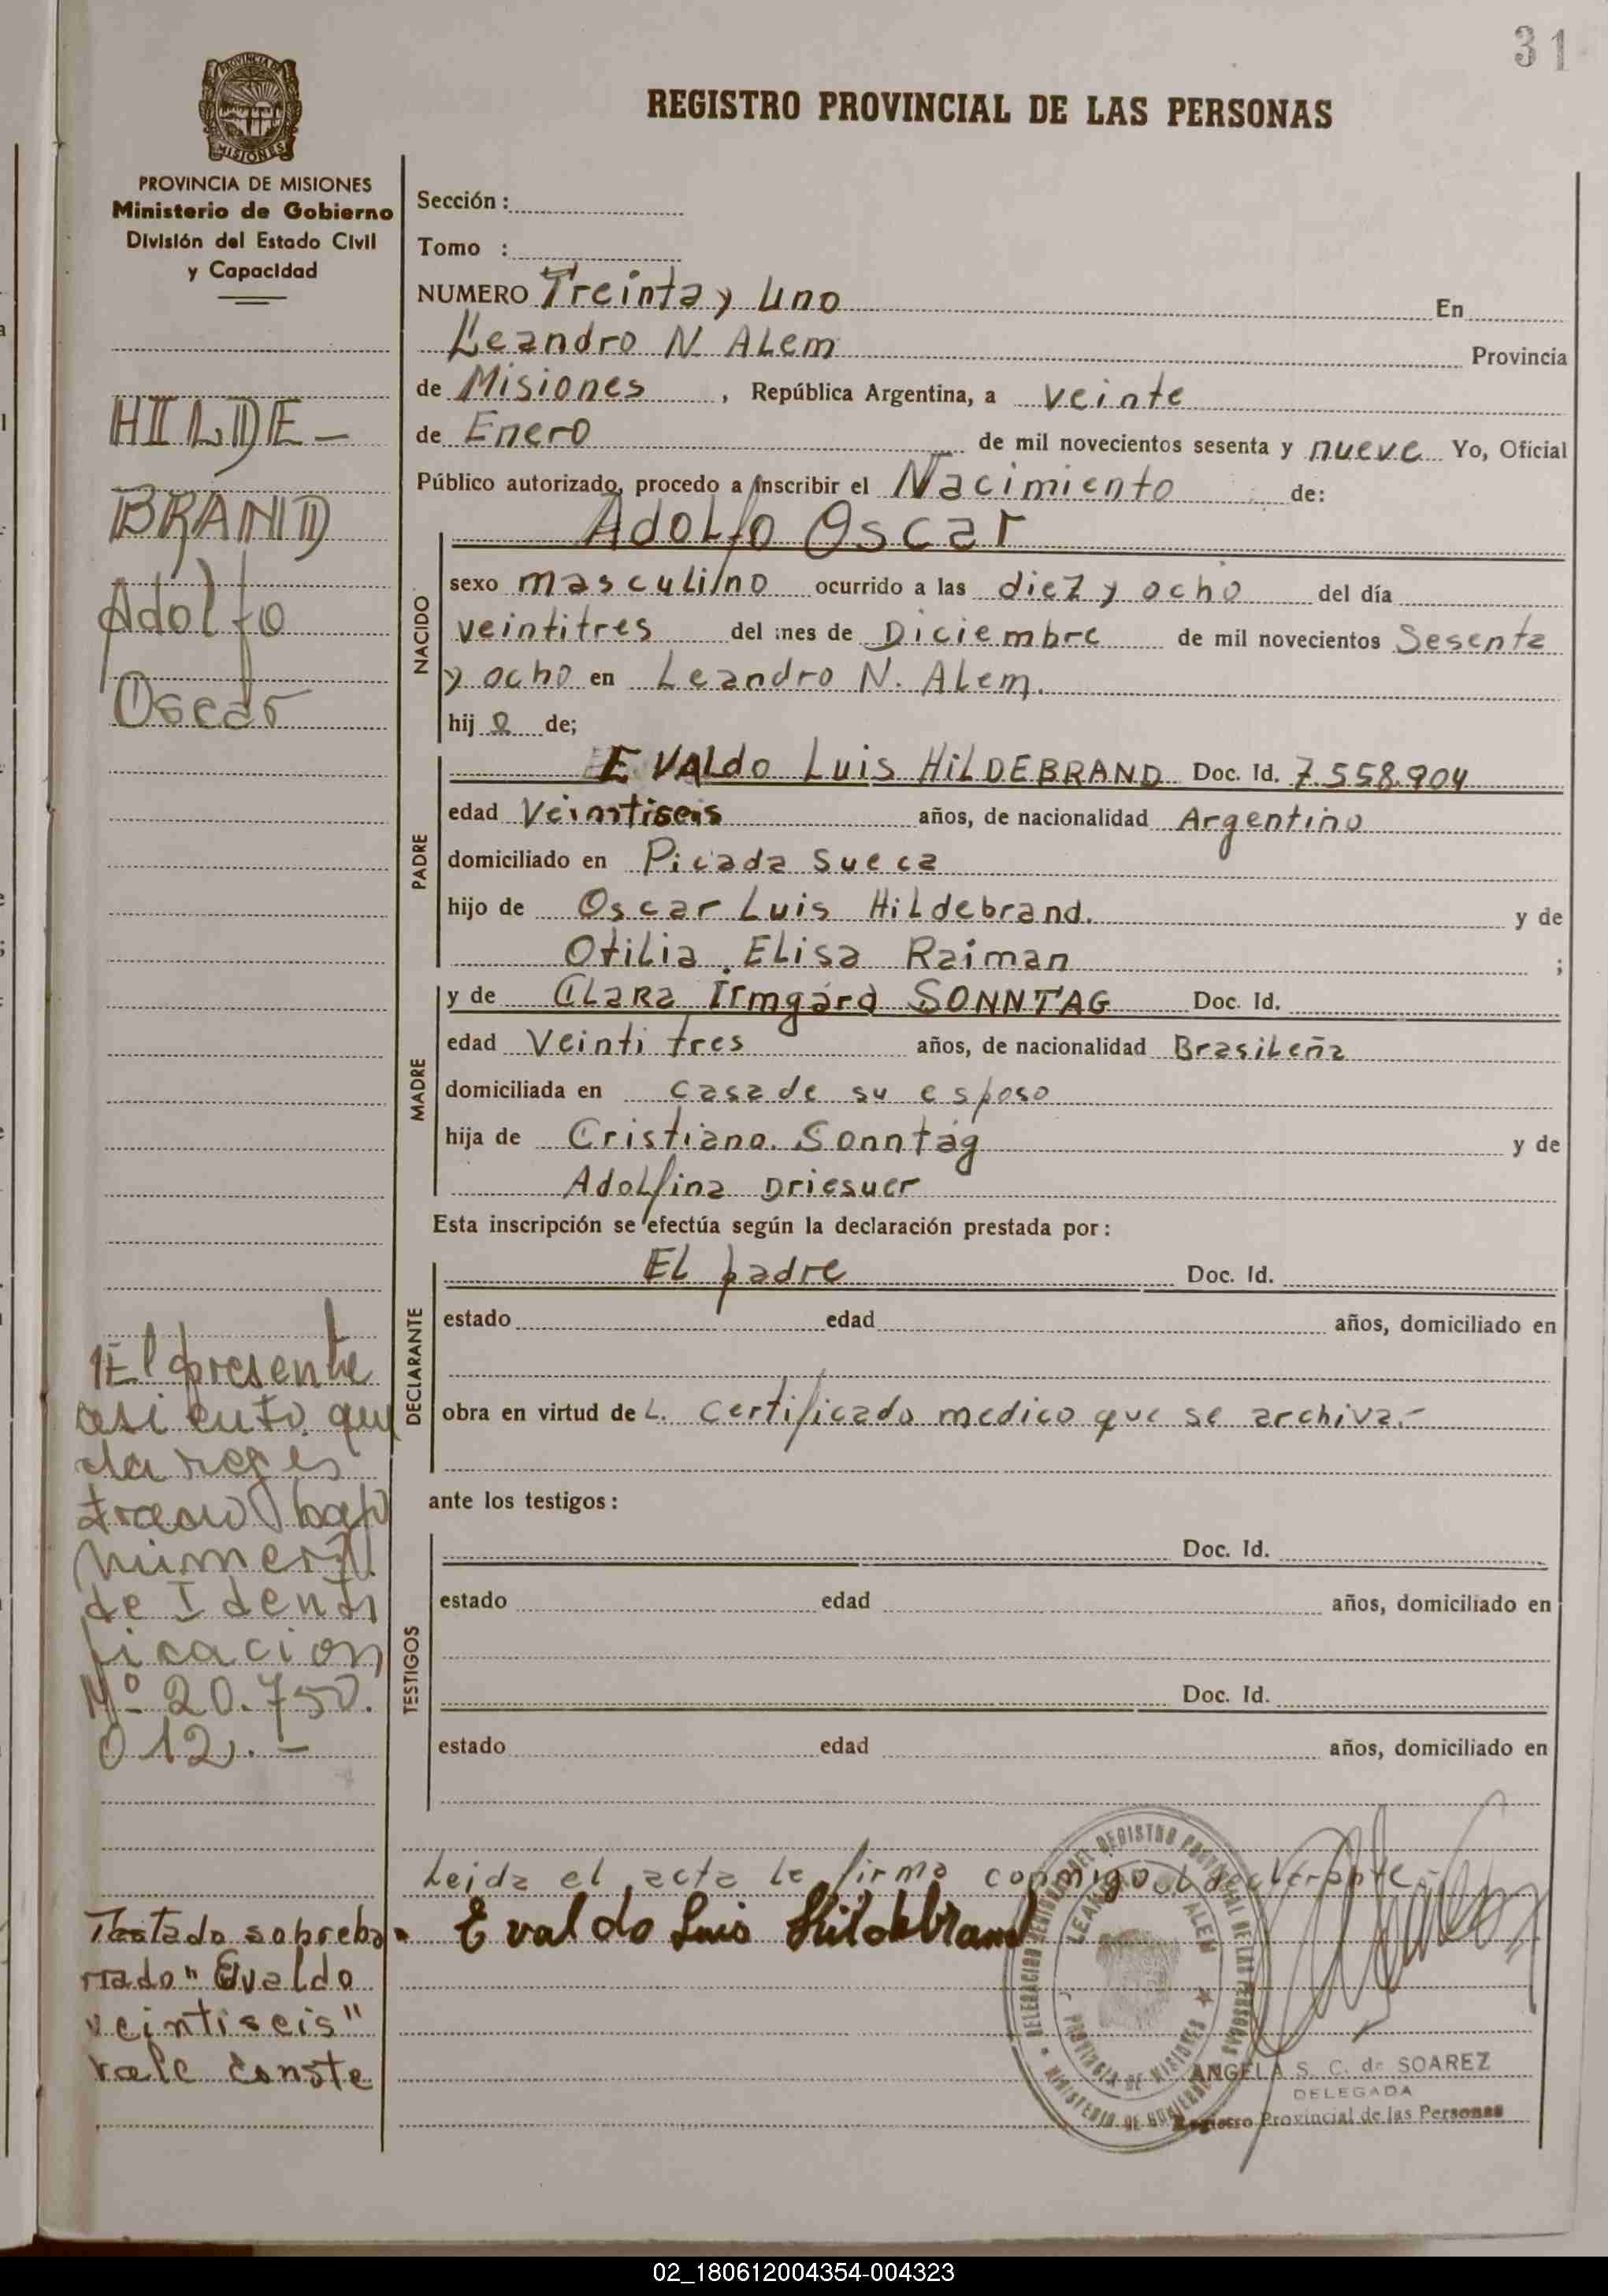 31
REGISTRO PROVINCIAL DE LAS PERSONAS
PROVINCIA DE MISIONES
Ministerio de Gobierno
División del Estado Civil
y Capacidad
HILDE-
BRAND
Adolfo
Oscar
Sección:
Tomo :
NUMERO Treinta y Uno En
Leandro N. Alem Provincia
de Misiones, República Argentina, a veinte
de Enero de mil novecientos sesenta y nueve Yo, Oficial
Público autorizado, procedo a inscribir el Nacimiento de:
NACIDO
Adolfo Oscar
sexo masculino ocurrido a las diez y ocho del día
veintitres del mes de Diciembre de mil novecientos Sesenta
y ocho en Leandro N. Alem.
hijo de;
PADRE
EVALdo Luis HiLDEBRAND Doc. Id. 7.558.904
edad Veintiseis años, de nacionalidad Argentino
domiciliado en Picada Sueca
hijo de Oscar Luis Hildebrand. y de
Otilia Elisa Raiman ;
MADRE
y de Clara Irmgard SONNTAG Doc. Id.
edad Veinti tres años, de nacionalidad Brasileña
domiciliada en casa de su esposo
hija de Cristiano Sonntag y de
Adolfina Driesuer
Esta inscripción se efectúa según la declaración prestada por:
DECLARANTE
El padre Doc. Id.
estado edad años, domiciliado en
obra en virtud de L. certificado medico que se archiva.-
ante los testigos:
TESTIGOS
Doc. Id.
estado edad años, domiciliado en
Doc. Id.
estado edad años, domiciliado en
1El presente
asiento que
da regis
trado bajo
número
de Identi
ficacion
Nº 20.750.
012.-
Leida el acta la firma conmigo el declarante.-
Evaldo Luis Hildebrand
Testado sobreba
rrado "Evaldo
veintiseis"
vale conste
DELEGACION DEL REGISTRO PROVINCIAL DE LAS PERSONAS
MINISTERIO DE GOBIERNO
LEANDRO N. ALEM
PROVINCIA DE MISIONES
ANGELA S. C. de SOAREZ
DELEGADA
Registro Provincial de las Personas
02_180612004354-004323